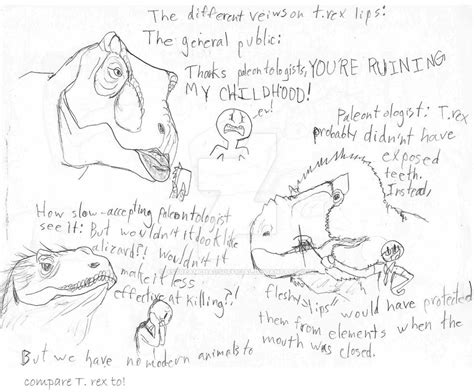 The different veiws on T.rex lips:
The general public:
Thanks paleontologists, YOU'RE RUINING
MY CHILDHOOD!
ew!
Paleontologist: T.rex
probably didn'nt have
exposed
teeth.
Instead,
fleshy "lips" would have protected
them from elements when the
mouth was closed.
How slow-accepting paleontologist
see it: But wouldn't it look like
a lizard?! Wouldn't it
make it less
effective at killing?!
But we have no modern animals to
compare T. rex to!